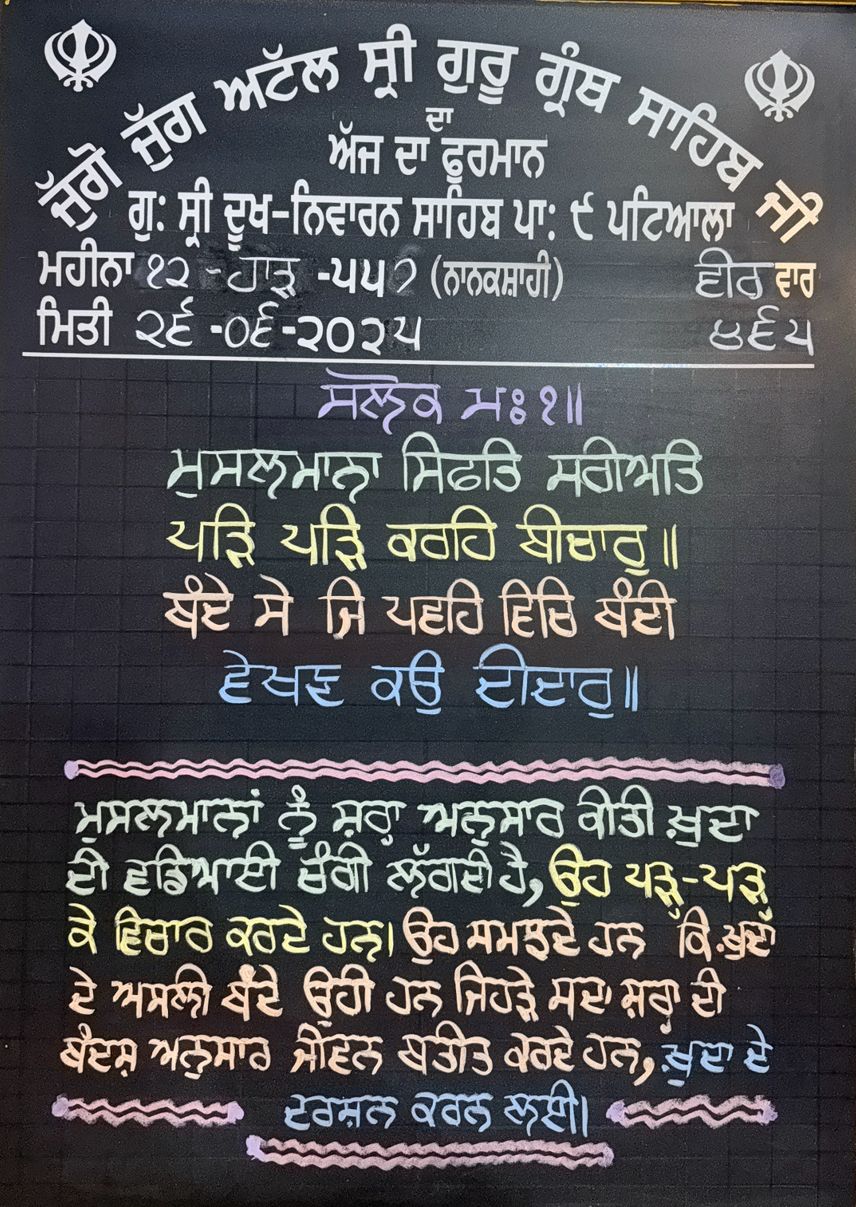 ਜੁੱਗੋ ਜੁੱਗ ਅਟੱਲ ਸ੍ਰੀ ਗੁਰੂ ਗ੍ਰੰਥ ਸਾਹਿਬ ਜੀ
ਦਾ
ਅੱਜ ਦਾ ਫੁਰਮਾਨ
ਗੁ: ਸ੍ਰੀ ਦੂਖ-ਨਿਵਾਰਨ ਸਾਹਿਬ ਪਾ: ੯ ਪਟਿਆਲਾ
ਮਹੀਨਾ ੧੨ -ਹਾੜ -੫੫੭ (ਨਾਨਕਸ਼ਾਹੀ) ਵੀਰ ਵਾਰ
ਮਿਤੀ ੨੬ -੦੬-੨੦੨੫ ੪੬੫
ਸਲੋਕ ਮਃ ੧॥
ਮੁਸਲਮਾਨਾ ਸਿਫਤਿ ਸਰੀਅਤਿ
ਪੜਿ ਪੜਿ ਕਰਹਿ ਬੀਚਾਰੁ॥
ਬੰਦੇ ਸੇ ਜਿ ਪਵਹਿ ਵਿਚਿ ਬੰਦੀ
ਵੇਖਣ ਕਉ ਦੀਦਾਰੁ॥
ਮੁਸਲਮਾਨਾਂ ਨੂੰ ਸ਼ਰ੍ਹਾ ਅਨੁਸਾਰ ਕੀਤੀ ਖ਼ੁਦਾ
ਦੀ ਵਡਿਆਈ ਚੰਗੀ ਲੱਗਦੀ ਹੈ, ਉਹ ਪੜ੍ਹ-ਪੜ੍ਹ
ਕੇ ਵਿਚਾਰ ਕਰਦੇ ਹਨ। ਉਹ ਸਮਝਦੇ ਹਨ ਕਿ ਖ਼ੁਦਾ
ਦੇ ਅਸਲੀ ਬੰਦੇ ਉਹੀ ਹਨ ਜਿਹੜੇ ਸਦਾ ਸ਼ਰ੍ਹਾ ਦੀ
ਬੰਦਸ਼ ਅਨੁਸਾਰ ਜੀਵਨ ਬਤੀਤ ਕਰਦੇ ਹਨ, ਖ਼ੁਦਾ ਦੇ
ਦਰਸ਼ਨ ਕਰਨ ਲਈ।